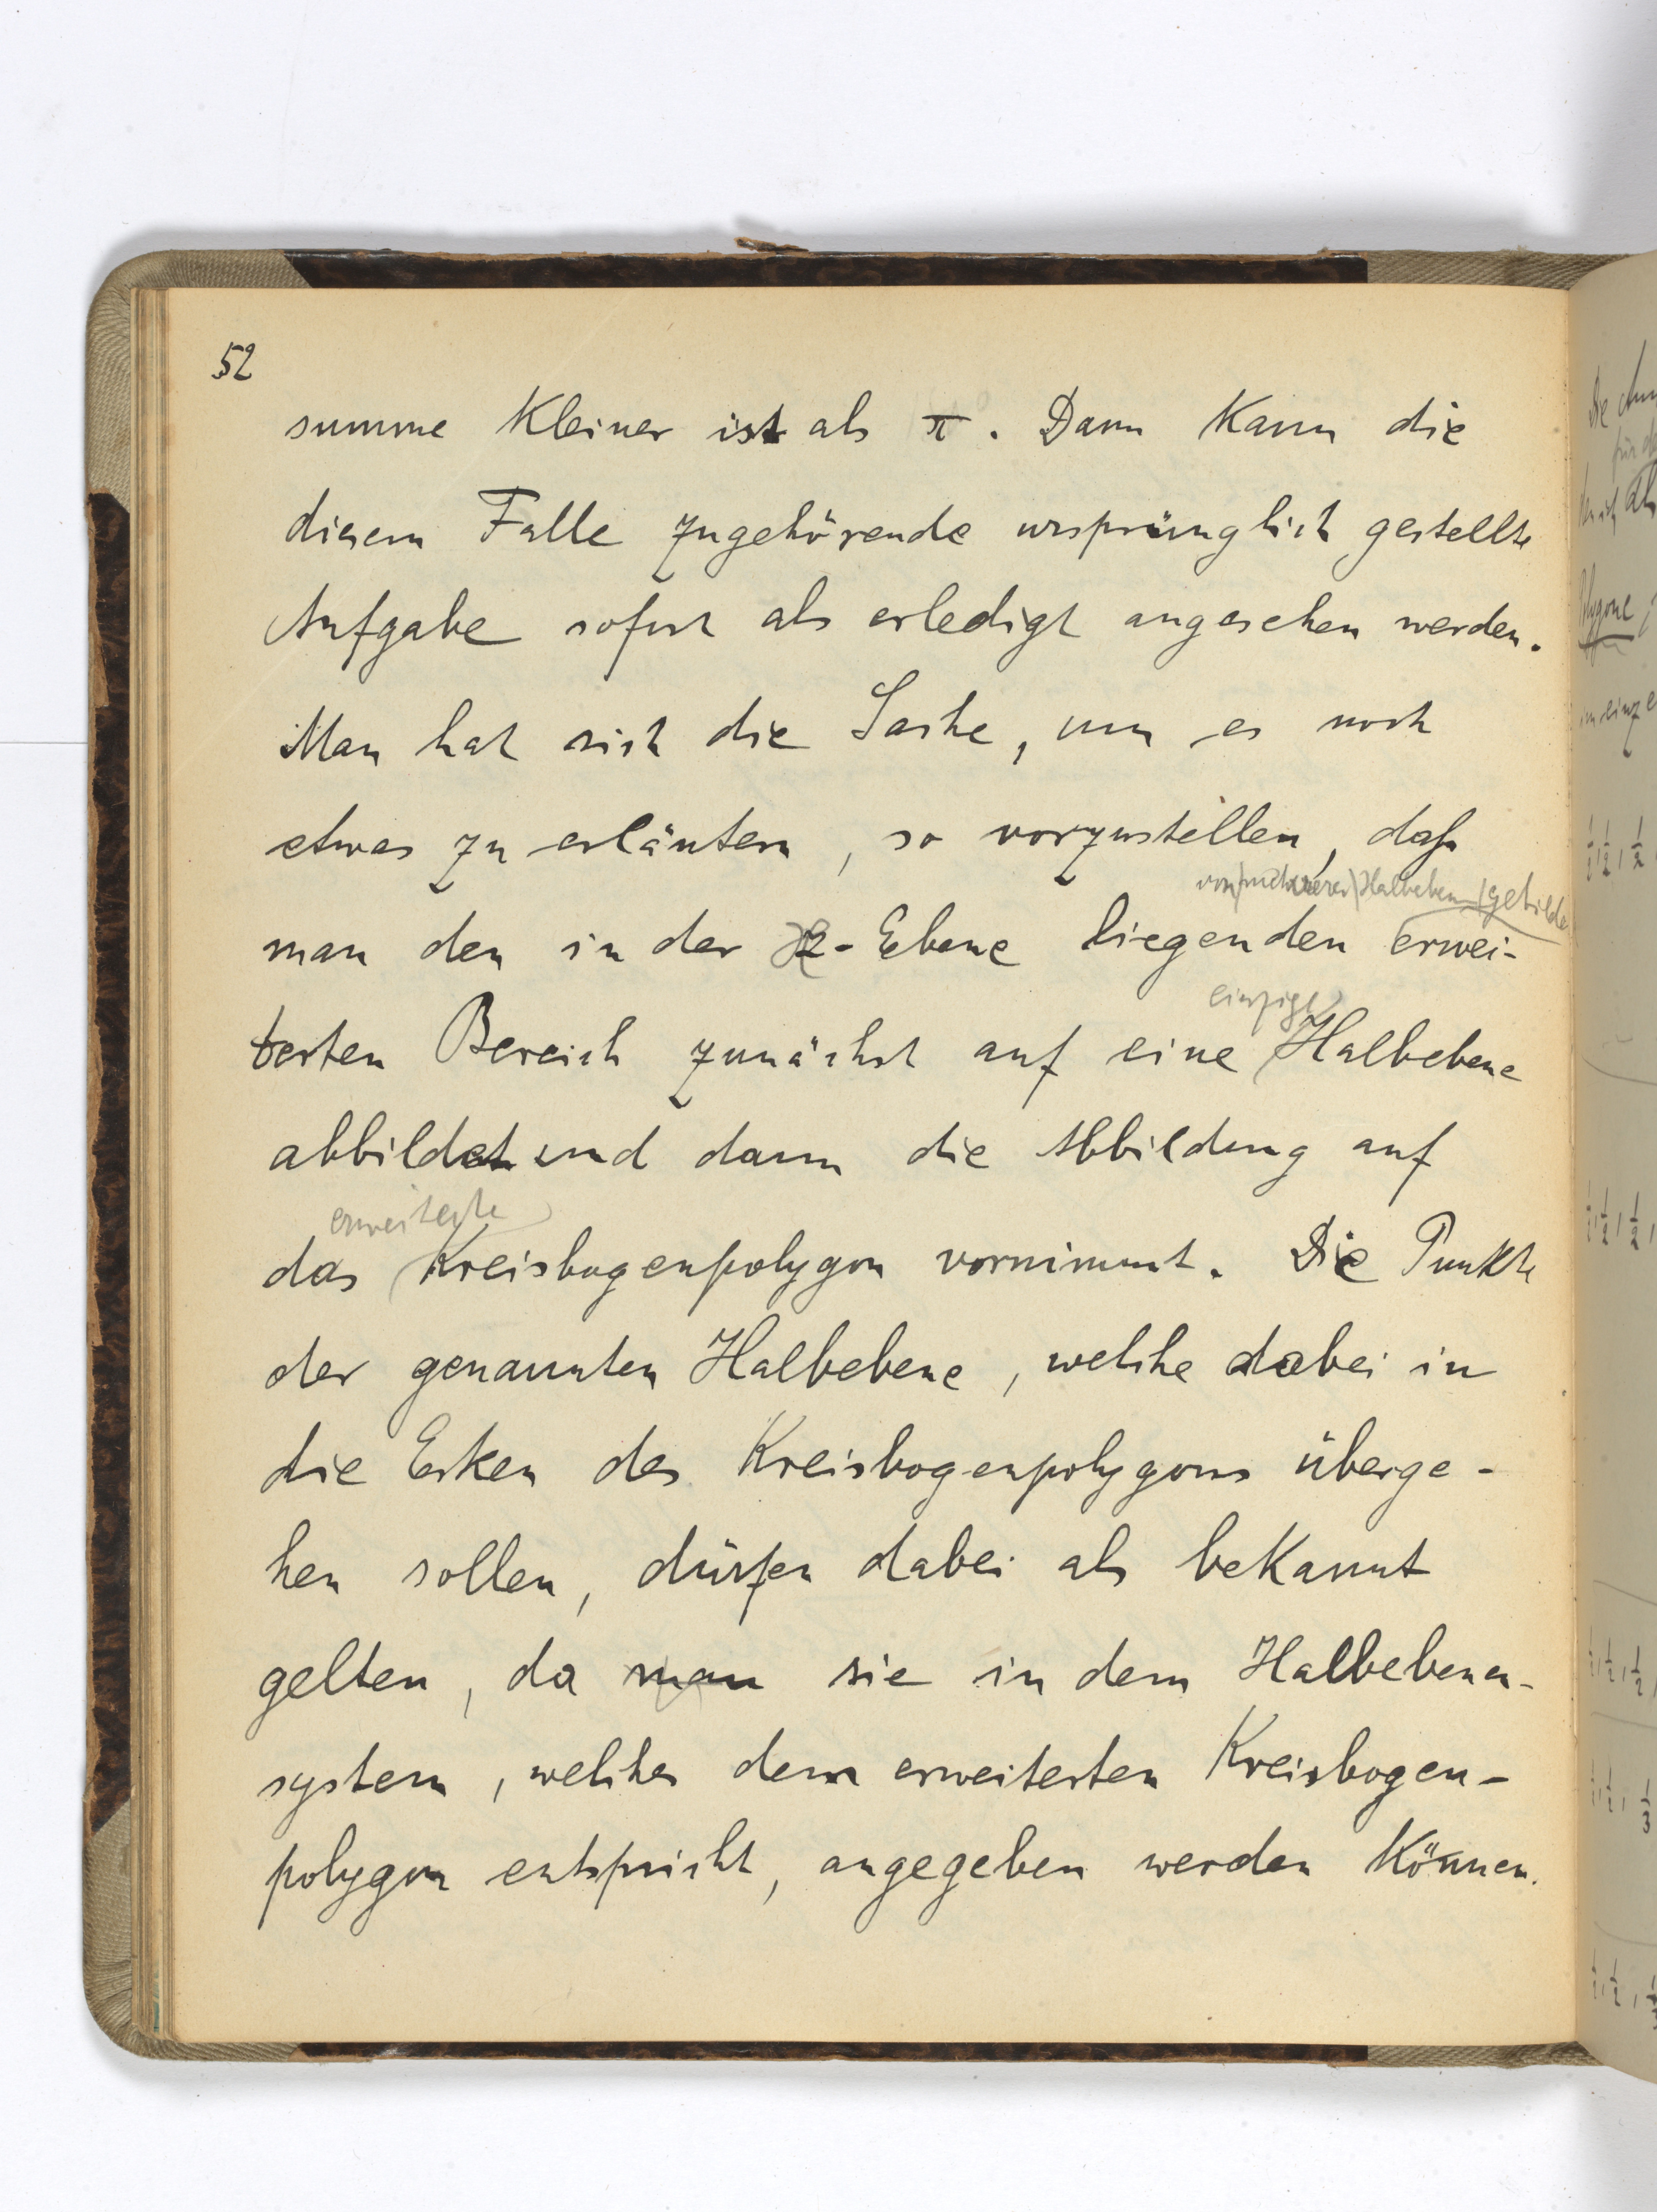 52
summe kleiner ist als π. Dann kann die
diesem Falle zugehörende ursprünglich gestellte
Aufgabe sofort als erledigt angesehen werden.
Man hat sich die Sache, um es noch
etwas zu erläutern, so vorzustellen, daß
von mehreren Halbebenen gebilde
man den in der z-Ebene liegenden erwei-
einzige
terten Bereich zunächst auf eine Halbebene
abbildet und dann die Abbildung auf
erweiterte
das Kreisbogenpolygon vornimmt. Die Punkte
der genannten Halbebene, welche dabei in
die Ecken des Kreisbogenpolygons überge-
hen sollen, dürfen dabei als bekannt
gelten, da man sie in dem Halbebenen-
system, welches dem erweiterten Kreisbogen-
polygon entspricht, angegeben werden können.
Die
für
Polygone
im einze